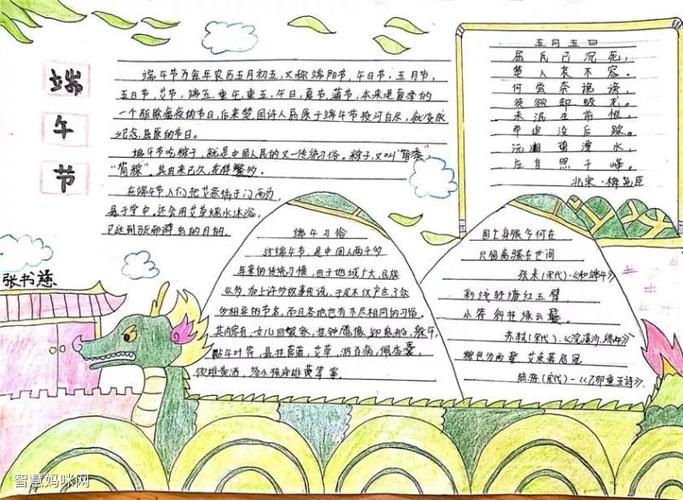 端
午
节
端午节为每年农历五月初五,又称端阳节,午日节,五月节,
五日节,艾节,端五,重午,重五,午日,夏节,蒲节,本来是夏季的
一个驱除瘟疫的节日,后来楚国诗人屈原于端午节投河自尽,就变成
纪念屈原的节日。
端午节吃粽子,就是中国人民的又一传统习俗。粽子,又叫"角黍"
"筒粽",其由来已久,花样繁多。
在端午节人们把艾条插于门两边,
悬于堂中,还会用艾草烧水沐浴,
的目的。
五月五日
屈氏已沉死,
楚人哀不容。
何尝奈谗谤,
徒欲却蛟龙。
未泯生前恨,
而追没后踪。
沅湘碧潭水,
应自照千峰。
北宋·梅尧臣
张书慈
端午习俗
过端午节,是中国人两千多
年来的传统习惯,由于地域广大,民族
众多,加上许多故事传说,于是不仅产生了众
多相异的节名,而且各地也有不尽相同的习俗。
其内容有:女儿回娘家,挂钟馗像,迎鬼船、躲午,
贴午叶符,悬挂菖蒲,艾草,游百病,佩香囊,
饮雄黄酒,
国亡身殒今何在
只留离骚在世间
张耒(宋代)·《和端午》
彩线轻缠红玉臂
小符斜挂绿云鬟
苏轼(宋代)·《浣溪沙·端午》
粽包分两髻,艾束著危冠
陆游(宋代)-《乙卯重五诗》
智慧妈咪网